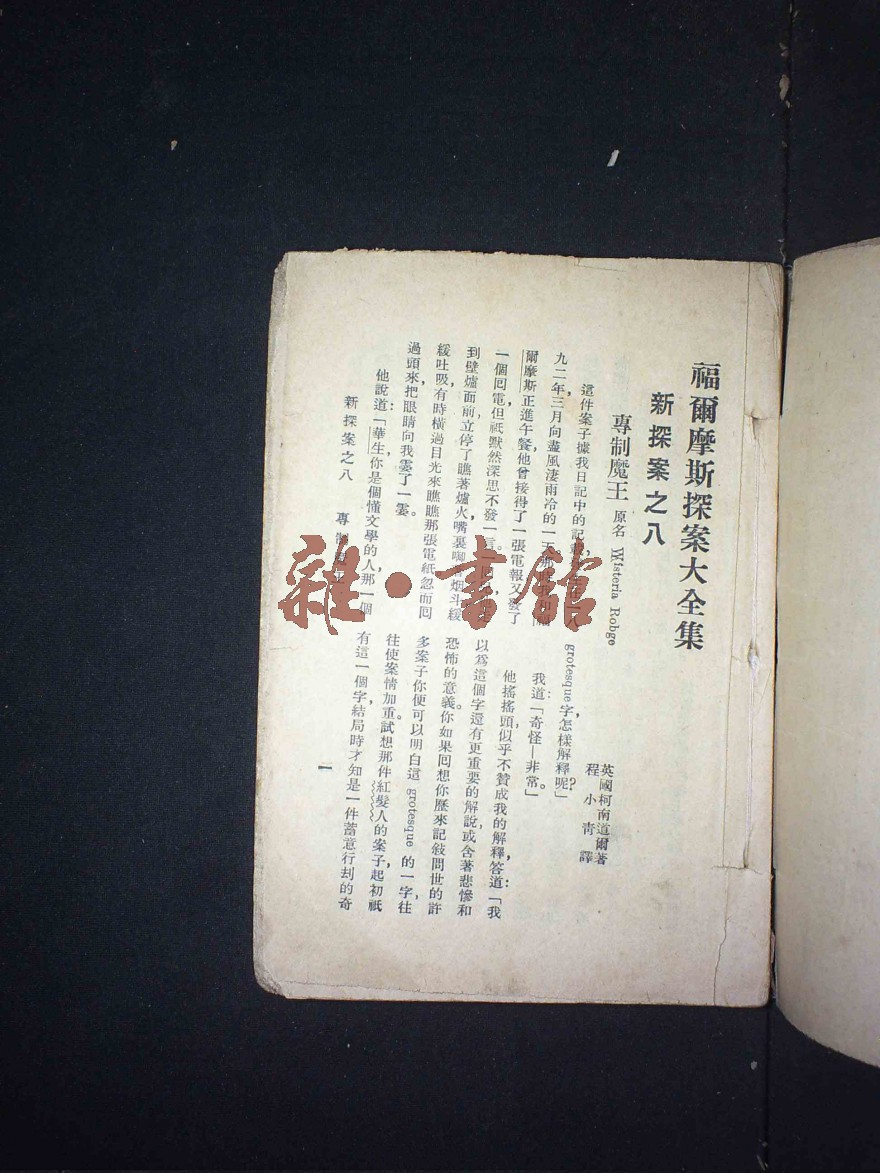 福爾摩斯探案大全集
新探案之八
專制魔王 原名 Wisteria Robge
英國柯南道爾著
程小青譯
這件案子據我日記中的記載，一八
九二年三月向盡風淒雨冷的一天那時我和福
爾摩斯正進午餐他曾接得了一張電報又發了
一個回電但祇默然深思不發一言。
到壁爐面前立停了瞧著爐火嘴裏啣著烟斗緩
緩吐吸有時橫過目光來瞧瞧那張電紙忽而回
過頭來把眼睛向我霎了一霎。
他說道：「華生，你是個懂文學的人那一個
grotesque字，怎樣解釋呢？」
我道：「奇怪—非常。」
他搖搖頭似乎不贊成我的解釋，答道：「我
以爲這個字還有更重要的解說或含著悲慘和
恐怖的意義。你如果回想你歷來記敍問世的許
多案子你便可以明白這 grotesque 的一字往
往使案情加重。試想那件紅髮人的案子，起初祇
有這一個字，結局時才知是一件蓄意行刦的奇
新探案之八 專制魔王
一
雜·書館